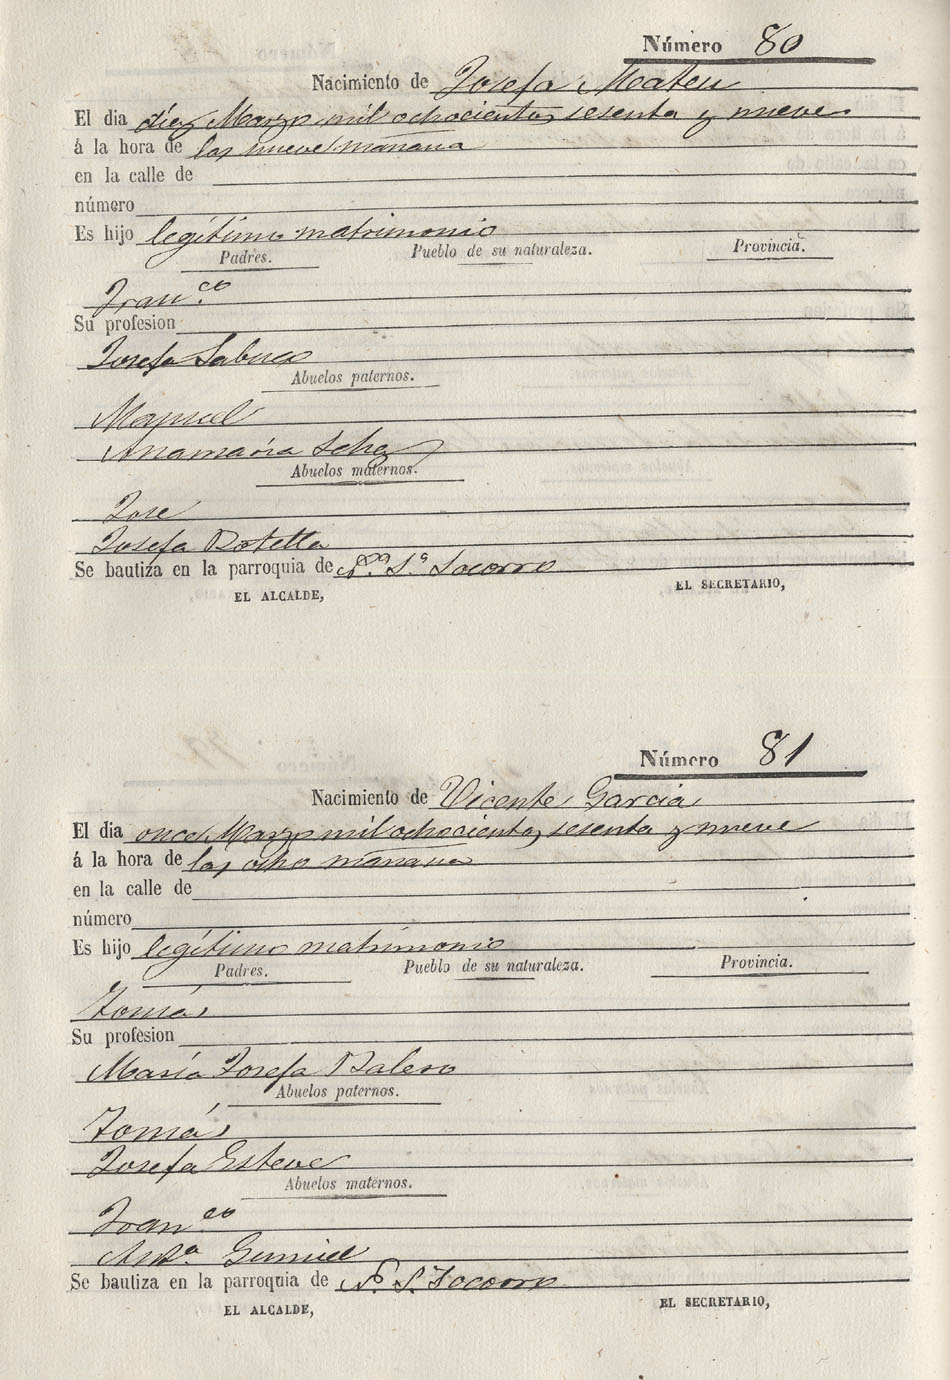 Número 80
Nacimiento de Josefa Mateu
El dia diez Marzo mil ochocientos sesenta y nueve
á la hora de las nueve mañana
en la calle de
número
Es hijo legítimo matrimonio
Padres. Pueblo de su naturaleza. Provincia.
Fran.co
Su profesion
Josefa
Abuelos paternos.
Manuel
Anamaría
Abuelos maternos.
José
Josefa Botella
Se bautiza en la parroquia de N.a S.a Socorro
EL ALCALDE, EL SECRETARIO,
Número 81
Nacimiento de Vicente Garcia
El dia once Marzo mil ochocientos sesenta y nueve
á la hora de las ocho mañana
en la calle de
número
Es hijo legítimo matrimonio
Padres. Pueblo de su naturaleza. Provincia.
Tomás
Su profesion
María Josefa Balero
Abuelos paternos.
Tomás
Josefa Esteve
Abuelos maternos.
Fran.co
Ant.a Gumiel
Se bautiza en la parroquia de N. S. Socorro
EL ALCALDE, EL SECRETARIO,